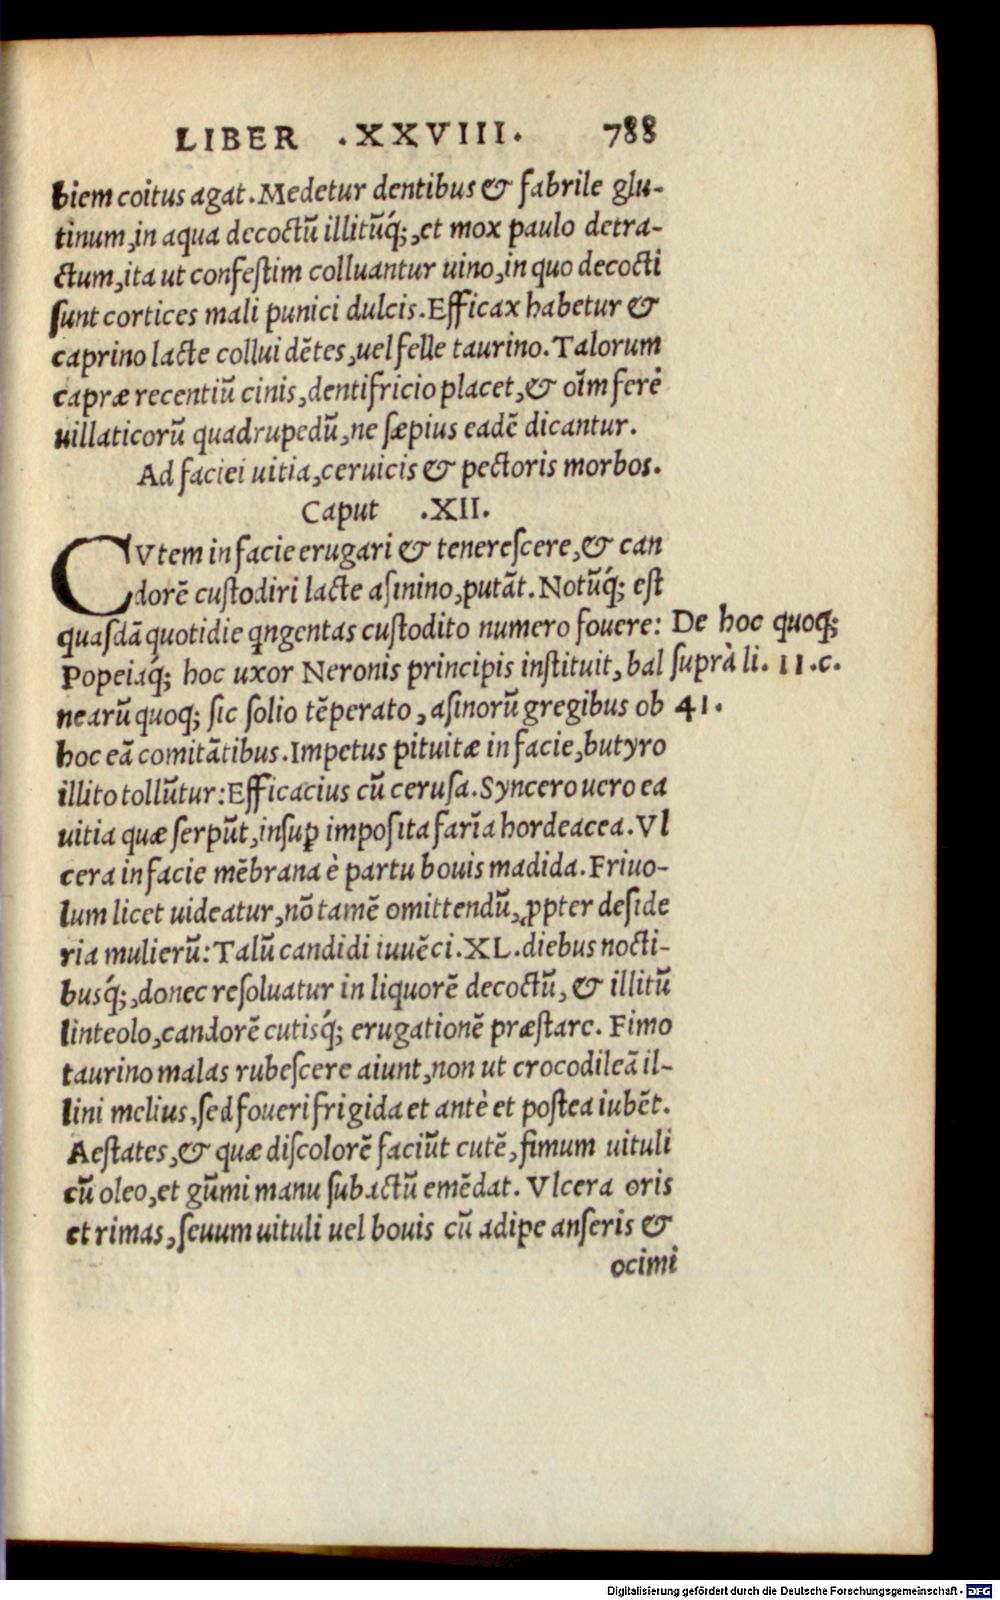 LIBER .XXVIII. 788
biem coitus agat. Medetur dentibus & fabrile glu-
tinum, in aqua decoctũ illitũq́;, et mox paulo detra-
ctum, ita ut confeſtim colluantur uino, in quo decocti
ſunt cortices mali punici dulcis. Efficax habetur &
caprino lacte collui dẽtes, uel felle taurino. Talorum
capræ recentiũ cinis, dentifricio placet, & oĩm ferè
uillaticorũ quadrupedũ, ne ſæpius eadẽ dicantur.
Ad faciei uitia, ceruicis & pectoris morbos.
Caput .XII.
CVtem in facie erugari & tenereſcere, & can
dorẽ cuſtodiri lacte aſinino, putãt. Notũq́; eſt
quaſdã quotidie qngentas cuſtodito numero fouere:
Popeiaq́; hoc uxor Neronis principis inſtituit, bal
nearũ quoq; ſic ſolio tẽperato, aſinorũ gregibus ob
hoc eã comitãtibus. Impetus pituitæ in facie, butyro
illito tollũtur: Efficacius cũ ceruſa. Syncero uero ea
uitia quæ ſerpũt, inſuꝑ impoſita farĩa hordeacea. Vl
cera in facie mẽbrana è partu bouis madida. Friuo-
lum licet uideatur, nõ tamẽ omittendũ, ꝓpter deſide
ria mulierũ: Talũ candidi iuuẽci. XL. diebus nocti-
busq́;, donec reſoluatur in liquorẽ decoctũ, & illitũ
linteolo, candorẽ cutisq́; erugationẽ præſtare. Fimo
taurino malas rubeſcere aiunt, non ut crocodileã il-
lini melius, ſed foueri frigida et antè et poſtea iubẽt.
Aeſtates, & quæ diſcolorẽ faciũt cutẽ, fimum uituli
cũ oleo, et gũmi manu ſubactũ emẽdat. Vlcera oris
et rimas, ſeuum uituli uel bouis cũ adipe anſeris &
ocimi
De hoc quoq;
ſuprà li. 11.c.
41.
Digitalisierung gefördert durch die Deutsche Forschungsgemeinschaft - DFG